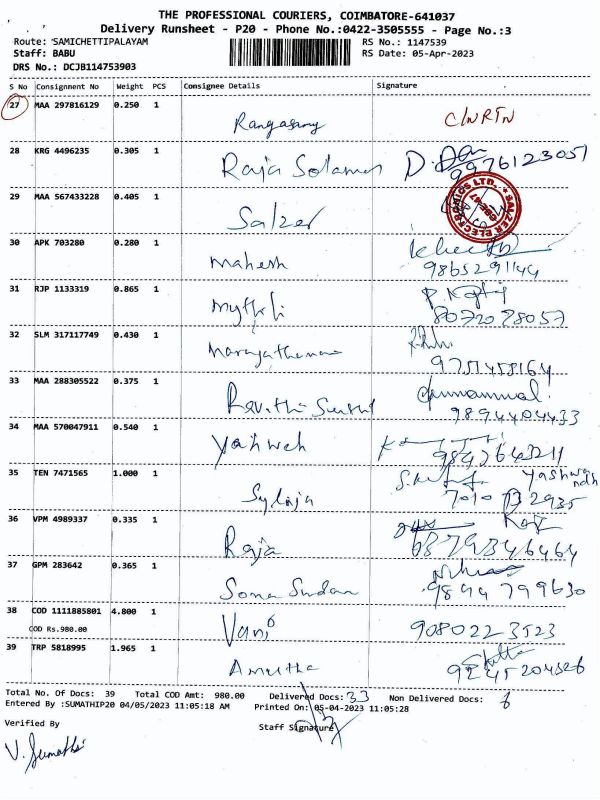 THE PROFESSIONAL COURIERS, COIMBATORE-641037
Delivery Runsheet - P20 - Phone No.:0422-3505555 - Page No.:3
Route: 'SAMICHETTIPALAYAM RS No.: 1147539
Staff: BABU RS Date: 05-Apr-2023
DRS No.: DCJB114753903
S No Consignment No Weight PCS Consignee Details Signature
27 MAA 297816129 0.250 1 Rangasamy C/N RTN
28 KRG 4496235 0.305 1 Raja Solamon 9976123051
29 MAA 567433228 0.405 1 Salzer SALZER ELECTRONICS LTD. CBE-47
30 APK 703280 0.280 1 Mahesh 9865291144
31 RJP 1133319 0.865 1 Mythili 8072078057
32 SLM 317117749 0.430 1 9751458164
33 MAA 288305522 0.375 1 9894404433
34 MAA 570047911 0.540 1 Yahweh 9842643211
35 TEN 7471565 1.000 1 Sylaja Yashwandh
36 VPM 4989337 0.335 1 Raja
37 GPM 283642 0.365 1 Soma Sundar 9894799630
38 COD 1111885801 4.800 1 Vani 9080223523
COD Rs.980.00
39 TRP 5818995 1.965 1 Amutha
Total No. Of Docs: 39 Total COD Amt: 980.00 Delivered Docs: 33 Non Delivered Docs:
Entered By :SUMATHIP20 04/05/2023 11:05:18 AM Printed On: 05-04-2023 11:05:28
Verified By Staff Signature
V. Sumathi